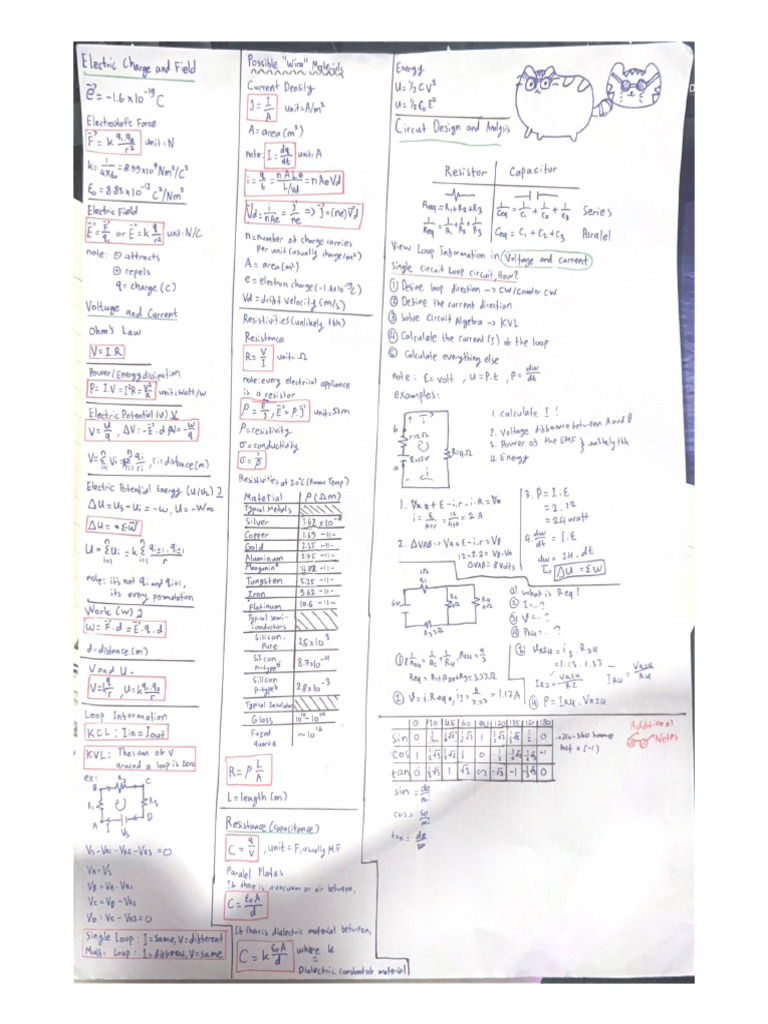 Electric Charge and Field
e⃗ = -1.6 x 10⁻¹⁹ C
Electrostatic Force
F⃗ = k q₁ q₂ / r² unit = N
k = 1/4πε₀ = 8.99 x 10⁹ Nm²/C²
ε₀ = 8.85 x 10⁻¹² C²/Nm²
Electric Field
E⃗ = F⃗/q₀ or E⃗ = k q/r² unit: N/C
note: ⊖ attracts
⊕ repels
q = charge (C)
Voltage and Current
Ohm's Law
V = I.R
Power/Energy dissipation
P = I.V = I²R = V²/R unit = watt/w
Electric Potential (V) V
V = U/q, ΔV = -E.d ΔV = -w/q
r = distance (m)
Electric Potential Energy (U/UL) J
ΔU = U₅ - Ui = -w, U = -W∞
U = Σ Ui = k Σ
note: it's not qi and qi+1,
its every permutation
Work (W) J
W = F⃗.d = E⃗.q.d
d = distance (m)
V and U
V = k q/r, U = k q₁.q₂/r
Loop Information
KCL: Iin = Iout
KVL: The sum of V
around a loop is zero
ex:
B R₂ C
R₁ R₃
A I V₅ D
V₅ - VR1 - VR2 - VR3 = 0
VA = V₅
VB = VA - VR1
VC = VB - VR2
VD = VC - VR3 = 0
Single Loop: I = same, V = different
Multi Loop: I = different, V = same
Possible "Wire" Materials
Current Density
J = I/A unit = A/m²
A = area (m²)
note: I = dq/dt unit: A
i = q/t = nALe / L/vd = nAeVd
V⃗d = i/nAe = J⃗/ne => J⃗ = (ne)V⃗d
n = number of charge carries
per unit (usually charge/m³)
A = area (m²)
e = electron charge (-1.6 x 10⁻¹⁹ C)
Vd = drift velocity (m/s)
Resistivities (unlikely tbh)
Resistance
R = V/I unit = Ω
note: every electrical appliance
is a resistor
ρ = E/J, E⃗ = ρ.J⃗ unit: Ωm
ρ = resistivity
σ = conductivity
σ = 1/ρ
Resistivities at 20°C (Room Temp)
Material ρ (Ωm)
Typical Metals
Silver 1.62 x 10⁻⁸
Copper 1.69 -11-
Gold 2.35 -11-
Aluminum 2.75 -11-
Manganin 4.82 -11-
Tungsten 5.25 -11-
Iron 9.68 -11-
Platinum 10.6 -11-
Typical semi-
conductors
Silicon,
Pure 2.5 x 10³
Silicon
n-type 8.7 x 10⁻⁴
Silicon
p-type 2.8 x 10⁻³
Typical Insulator
Glass 10¹⁰ - 10¹⁴
Fuzed
quartz ~ 10¹⁶
R = ρ L/A
L = length (m)
Resistance (capacitance)
C = q/V, unit = F, usually MF
Paralel Plates
If there is a vacuum or air between,
C = ε₀A/d
If there is dialectric material between,
C = k ε₀A/d where k =
Dialectric constant of material
Energy
U = ½ CV²
U = ½ ε₀ E²
Circuit Design and Analysis
Resistor Capacitor
Req = R₁ + R₂ + R₃ 1/Ceq = 1/C₁ + 1/C₂ + 1/C₃ Series
1/Req = 1/R₁ + 1/R₂ + 1/R₃ Ceq = C₁ + C₂ + C₃ Paralel
View Loop Information in Voltage and Current
Single Circuit Loop circuit, How?
① Define loop direction → CW/Counter CW
② Define the current direction
③ Solve Circuit Algebra → KVL
④ Calculate the current (I) of the loop
⑤ Calculate everything else
note: ε = volt, U = P.t, P = dw/dt
examples:
1. Calculate I!
2. Voltage distance between A and B
3. Power of the EMF } unlikely tbh
4. Energy
= 2 A
2. ΔVAB → VA + E - i.r = VB
12 - 2.2 = VB - VA
ΔVAB = 8 Volts
3. P = I.E
= 2.12
= 24 watt
4. dw/dt = I.E
dw = 24.dt
ΔU = εW
① What is Req?
② I = ..?
③ V = ..?
④ PR4 = ..?
④ P = IR4.VR24
0 30 45 60 90 120 135 150 180
sin
cos
tan
Additional
Notes